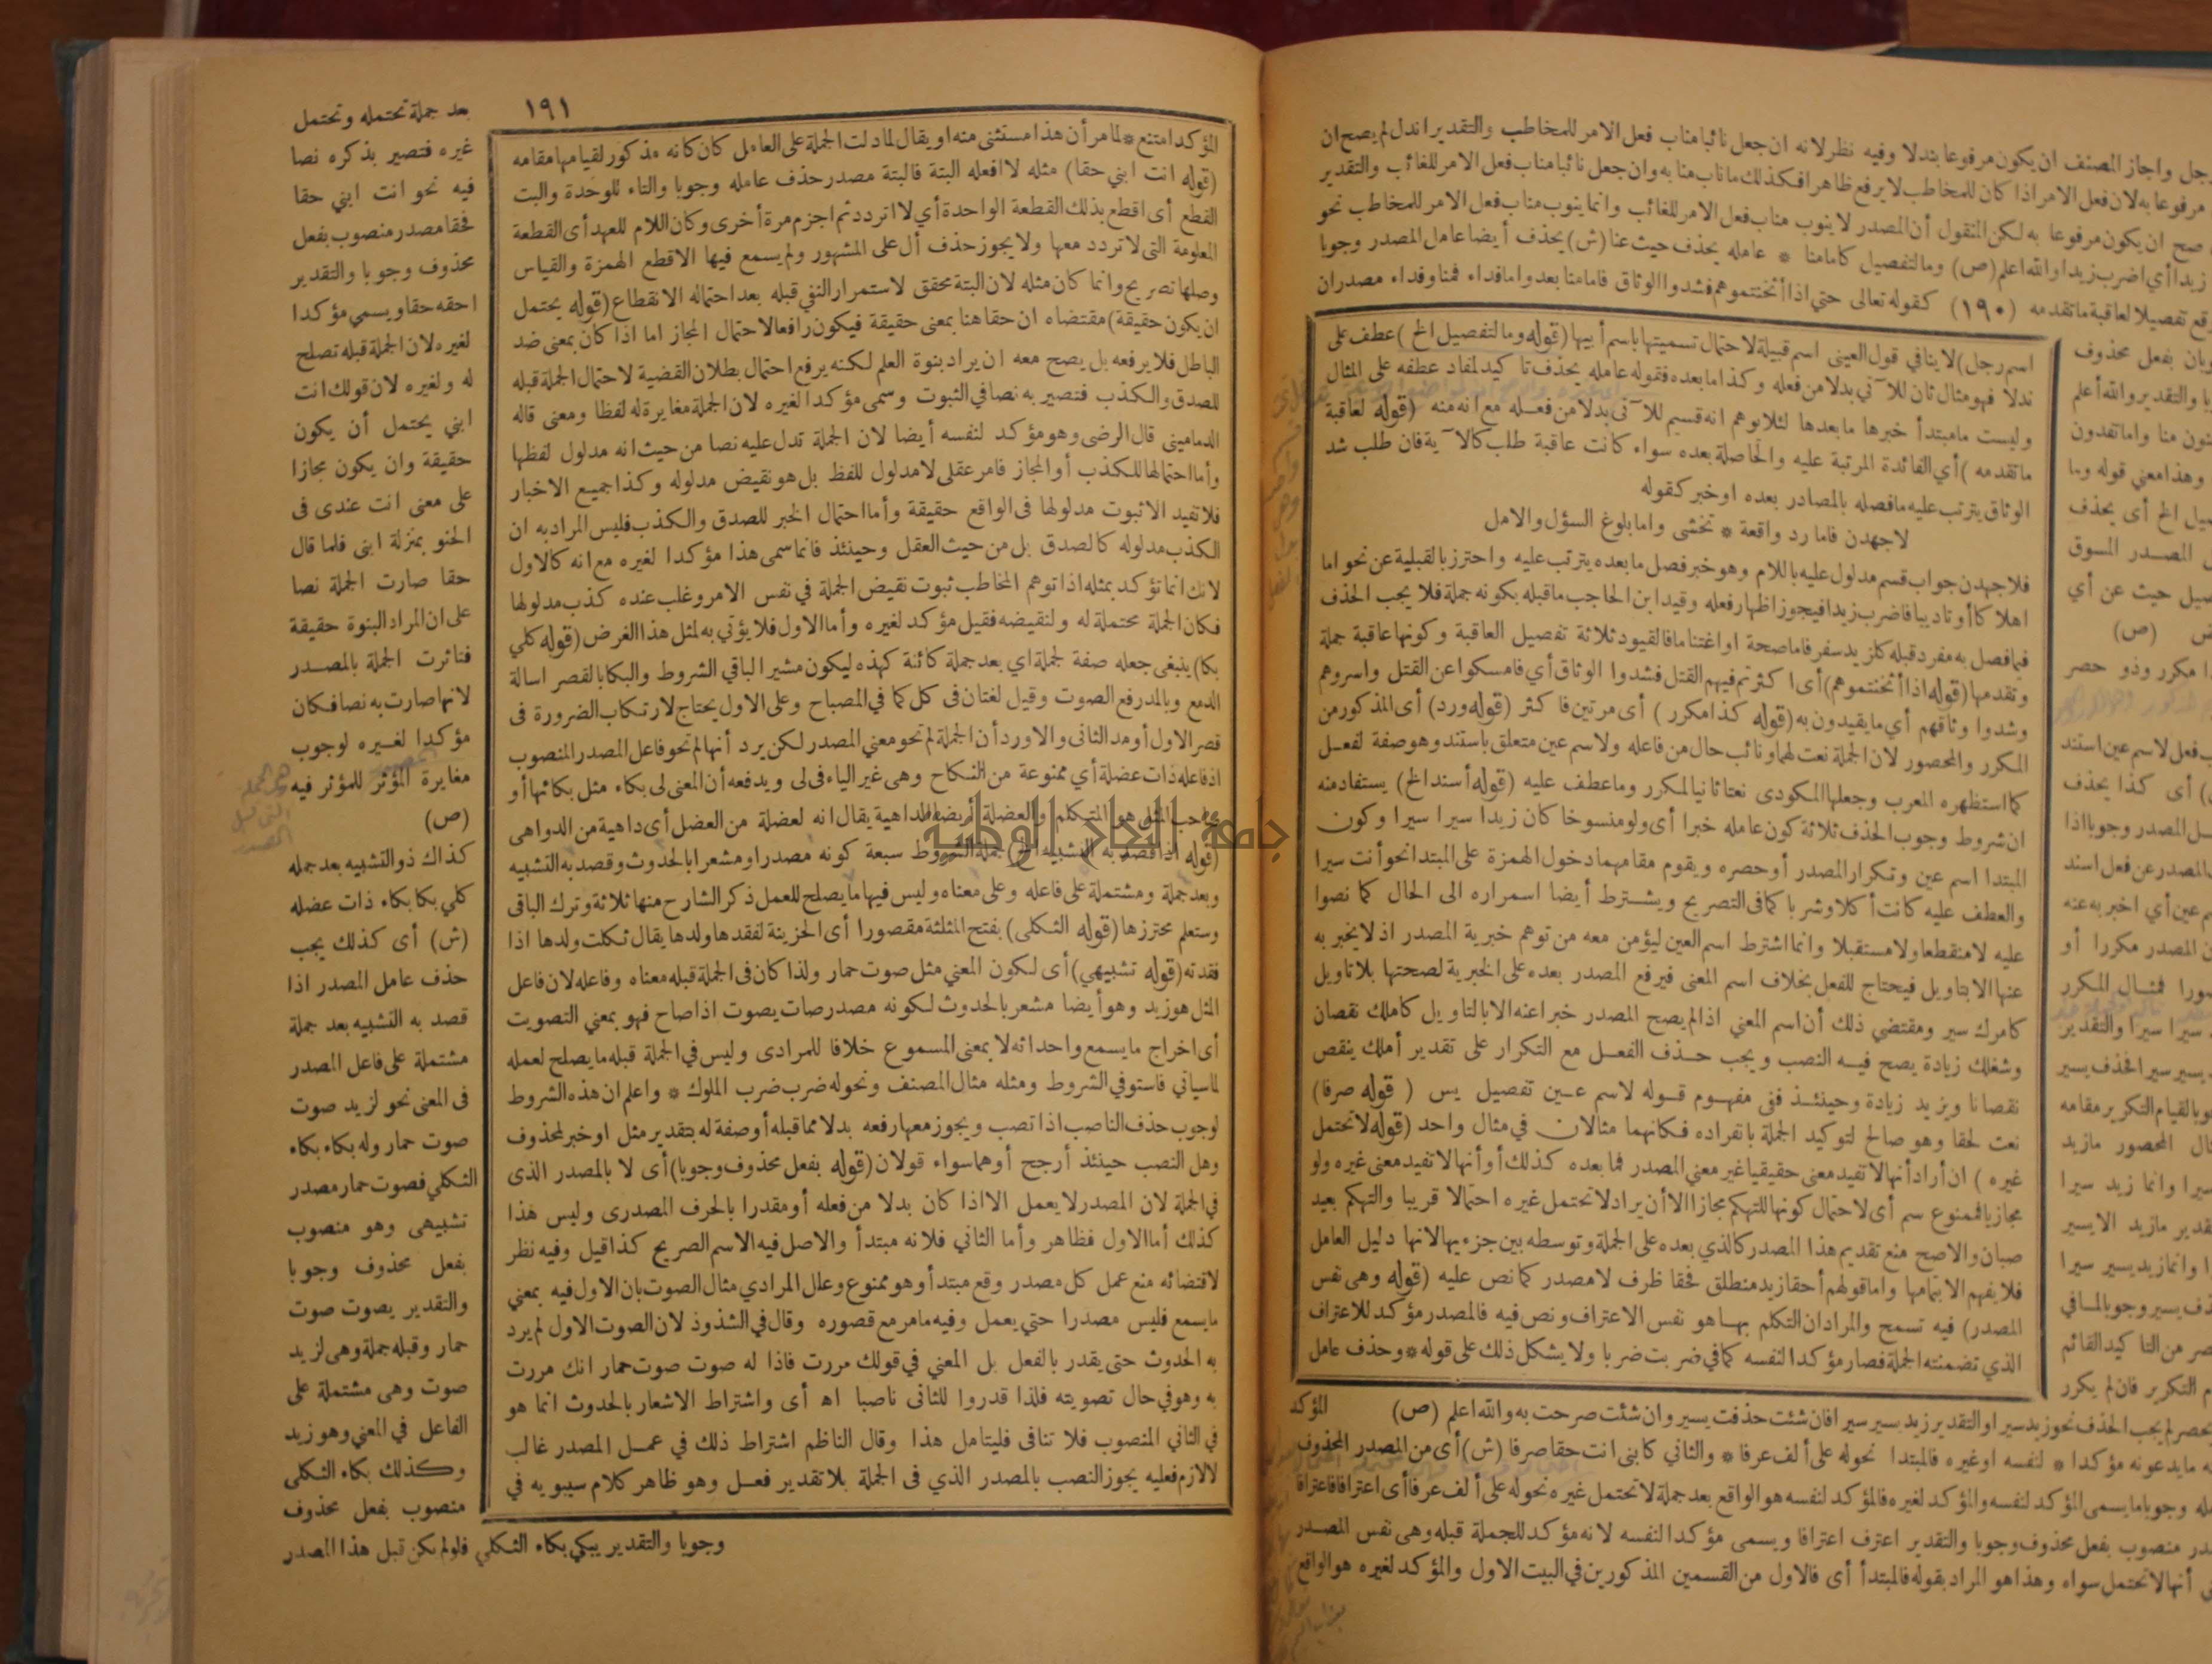 جل واجاز المصنف ان يكون مرفوعا بندلا وفيه نظر لانه ان جعل نائبا مناب فعل الامر للمخاطب والتقدير اندل لم يصح ان
مرفوعا به لان فعل الامر اذا كان للمخاطب لا يرفع ظاهرا فكذلك ماناب منابه وان جعل نائبا مناب فعل الامر للغائب والتقدير
صح ان يكون مرفوعا به لكن المنقول أن المصدر لا ينوب مناب فعل الامر للغائب وانما ينوب مناب فعل الامر للمخاطب نحو
زيدا أي اضرب زيدا والله اعلم (ص) وما لتفصيل كامامنا * عامله يحذف حيث عنا (ش) يحذف أيضا عامل المصدر وجوبا
قع تفصيلا لعاقبة ما تقدمه (١٩٠) كقوله تعالى حتي اذا أثخنتموهم فشدوا الوثاق فامامنا بعد واما فداء فمنا وفداء مصدران
اسم رجل) لا ينافي قول العيني اسم قبيلة لاحتمال تسميتها باسم أبيها (قوله وما لتفصيل الخ) عطف على
ندلا فهو مثال ثان للآتي بدلا من فعله وكذا ما بعده فقوله عامله يحذف تأكيد لمفاد عطفه على المثال
وليست ما مبتدأ خبرها ما بعدها لئلا يوهم انه قسيم للآتى بدلا من فعله مع انه منه (قوله لعاقبة
ما تقدمه) أي الفائدة المرتبة عليه والحاصلة بعده سواء كانت عاقبة طلب كالآية فان طلب شد
الوثاق يترتب عليه مافصله بالمصادر بعده اوخبر كقوله
لاجهدن فاما رد واقعة * تخشى واما بلوغ السؤل والامل
فلاجهدن جواب قسم مدلول عليه باللام وهو خبر فصل ما بعده يترتب عليه واحترز بالقبلية عن نحو اما
اهلا كا أو تاديبا فاضرب زيدا فيجوز اظهار فعله وقيد ابن الحاجب ما قبله بكونه جملة فلا يجب الحذف
فيما فصل به مفرد قبله كلزيد سفر فاما صحة او اغتناما فالقيود ثلاثة تفصيل العاقبة وكونها عاقبة جملة
وتقدمها (قوله اذا أثخنتموهم) أى اكثرتم فيهم القتل فشدوا الوثاق أي فامسكوا عن القتل واسروهم
وشدوا وثاقهم أي ما يقيدون به (قوله كذا مكرر) أى مرتين فاكثر (قوله ورد) أى المذكور من
المكرر والمحصور لان الجملة نعت لهما ونائب حال من فاعله ولاسم عين متعلق باستند وهو صفة لفعل
كما استظهره المعرب وجعلها المكودى نعتا ثانيا لمكرر وما عطف عليه (قوله أسند الخ) يستفاد منه
ان شروط وجوب الحذف ثلاثة كون عامله خبرا أى ولو منسوخا كان زيدا سيرا سيرا وكون
المبتدا اسم عين وتكرار المصدر أو حصره ويقوم مقامهما دخول الهمزة على المبتدا نحو أنت سيرا
والعطف عليه كانت أكلا وشربا كما فى التصريح ويشترط أيضا اسمراره الى الحال كما نصوا
عليه لا منقطعا ولا مستقبلا وانما اشترط اسم العين ليؤمن معه من توهم خبرية المصدر اذ لا يخبر به
عنها الا بتاويل فيحتاج للفعل بخلاف اسم المعنى فيرفع المصدر بعده على الخبرية لصحتها بلا تاويل
كامرك سير ومقتضي ذلك أن اسم المعني اذا لم يصح المصدر خبرا عنه الا بالتاويل كاملك نقصان
وشغلك زيادة يصح فيه النصب ويجب حذف الفعل مع التكرار على تقدير أملك ينقص
نقصانا ويزيد زيادة وحينئذ ففى مفهوم قوله لاسم عين تفصيل يس (قوله صرفا)
نعت لحقا وهو صالح لتوكيد الجملة بانفراده فكانهما مثالان في مثال واحد (قوله لا تحتمل
غيره) ان أراد أنها لا تفيد معنى حقيقيا غير معني المصدر فما بعده كذلك أو أنها لا تفيد معنى غيره ولو
مجازيا فممنوع سم أى لاحتمال كونها للتهكم مجازا الا أن يراد لا تحتمل غيره احتمالا قريبا والتهكم بعيد
صبان والاصح منع تقديم هذا المصدر كالذي بعده على الجملة وتوسطه بين جزءيها لانها دليل العامل
فلا يفهم الا بتمامها واما قولهم أحقا زيد منطلق فحقا ظرف لا مصدر كما نص عليه (قوله وهى نفس
المصدر) فيه تسمح والمراد ان التكلم بها هو نفس الاعتراف ونص فيه فالمصدر مؤكد للاعتراف
الذي تضمنته الجملة فصار مؤكدا لنفسه كما في ضربت ضربا ولا يشكل ذلك على قوله * وحذف عامل
المؤكد
وبان بفعل محذوف
با والتقدير والله أعلم
نون منا واما تفدون
وهذا معني قوله وما
صيل الخ أى يحذف
المصدر المسوق
صيل حيث عن أي
(ص)
ا مكرر وذو حصر
ب فعل لاسم عين استند
أى كذا يحذف
ل المصدر وجوبا اذا
المصدر عن فعل اسند
م عين أي اخبر به عنه
ن المصدر مكررا أو
صورا فمثال المكرر
سيرا سيرا والتقدير
يسير سيرا فحذف يسير
وبا لقيام التكرير مقامه
ال المحصور مازيد
سيرا وانما زيد سيرا
قدير مازيد الا يسير
ا وانما زيد يسير سيرا
ذف يسير وجوبا لما في
صر من التاكيد القائم
م التكرير فان لم يكرر
حصر لم يجب الحذف نحو زيد سيرا والتقدير زيد يسير سيرا فان شئت حذفت يسير وان شئت صرحت به والله اعلم (ص)
ه ما يدعونه مؤكدا * لنفسه اوغيره فالمبتدا نحو له على ألف عرفا * والثاني كابنى انت حقا صرفا (ش) أى من المصدر المحذوف
له وجوبا ما يسمى المؤكد لنفسه والمؤكد لغيره فالمؤكد لنفسه هو الواقع بعد جملة لا تحتمل غيره نحو له على ألف عرفا أى اعترافا فاعترافا
در منصوب بفعل محذوف وجوبا والتقدير اعترف اعترافا ويسمى مؤكدا لنفسه لانه مؤكد للجملة قبله وهى نفس المصدر
أنها لا تحتمل سواه وهذا هو المراد بقوله فالمبتدأ أى فالاول من القسمين المذكورين في البيت الاول والمؤكد لغيره هو الواقع
١٩١
المؤكد امتنع * لما مر أن هذا مستثنى منه او يقال لما دلت الجملة على العامل كان كانه مذكور لقيامها مقامه
(قوله انت ابني حقا) مثله لا افعله البتة فالبتة مصدر حذف عامله وجوبا والتاء للوحدة والبت
القطع أى اقطع بذلك القطعة الواحدة أي لا اتردد ثم اجزم مرة أخرى وكان اللام للعهد أى القطعة
المعلومة التى لا تردد معها ولا يجوز حذف أل على المشهور ولم يسمع فيها الا قطع الهمزة والقياس
وصلها تصريح وانما كان مثله لان البتة محقق لاستمرار النفي قبله بعد احتماله الانقطاع (قوله يحتمل
ان يكون حقيقة) مقتضاه ان حقا هنا بمعنى حقيقة فيكون رافعا لاحتمال المجاز اما اذا كان بمعنى ضد
الباطل فلا يرفعه بل يصح معه ان يراد بنوة العلم لكنه يرفع احتمال بطلان القضية لاحتمال الجملة قبله
للصدق والكذب فتصير به نصا في الثبوت وسمى مؤكدا لغيره لان الجملة مغايرة له لفظا ومعنى قاله
الدماميني قال الرضى وهو مؤكد لنفسه أيضا لان الجملة تدل عليه نصا من حيث انه مدلول لفظها
وأما احتمالها للكذب أو المجاز فامر عقلى لا مدلول للفظ بل هو نقيض مدلوله وكذا جميع الاخبار
فلا تفيد الا ثبوت مدلولها فى الواقع حقيقة وأما احتمال الخبر للصدق والكذب فليس المراد به ان
الكذب مدلوله كالصدق بل من حيث العقل وحينئذ فانما سمى هذا مؤكدا لغيره مع انه كالاول
لانك انما تؤكد بمثله اذا توهم المخاطب ثبوت نقيض الجملة في نفس الامر وغلب عنده كذب مدلولها
فكان الجملة محتملة له ولنقيضه فقيل مؤكد لغيره وأما الاول فلا يؤتي به لمثل هذا الغرض (قوله كلي
بكا) ينبغى جعله صفة لجملة اي بعد جملة كائنة كهذه ليكون مشيرا لباقي الشروط والبكا بالقصر اسالة
الدمع وبالمد رفع الصوت وقيل لغتان فى كل كما في المصباح وعلى الاول يحتاج لارتكاب الضرورة فى
قصر الاول أو مد الثانى والا ورد أن الجملة لم تحو معني المصدر لكن يرد أنها لم تحو فاعل المصدر المنصوب
اذ فاعله ذات عضلة أي ممنوعة من النكاح وهى غير الياء فى لى ويدفعه أن المعنى لى بكاء مثل بكائها أو
صاحب المثل هو المتكلم والعضلة أيضا الداهية يقال انه لعضلة من العضل أى داهية من الدواهى
(قوله اذا قصد به التشبيه الخ) جملة الشروط سبعة كونه مصدرا ومشعرا بالحدوث وقصد به التشبيه
وبعد جملة ومشتملة على فاعله وعلى معناه وليس فيها ما يصلح للعمل ذكر الشارح منها ثلاثة وترك الباقى
وستعلم محترزها (قوله الثكلى) بفتح المثلثة مقصورا أى الحزينة لفقدها ولدها يقال ثكلت ولدها اذا
فقدته (قوله تشبيهي) أى لكون المعني مثل صوت حمار ولذا كان فى الجملة قبله معناه وفاعله لان فاعل
المثل هو زيد وهو أيضا مشعر بالحدوث لكونه مصدر صات يصوت اذا صاح فهو بمعني التصويت
أى اخراج ما يسمع واحداثه لا بمعنى المسموع خلافا للمرادى وليس في الجملة قبله ما يصلح لعمله
لما سياني فاستوفي الشروط ومثله مثال المصنف ونحو له ضرب ضرب الملوك * واعلم ان هذه الشروط
لوجوب حذف الناصب اذا نصب ويجوز معها رفعه بدلا مما قبله أو صفة له بتقدير مثل او خبر لمحذوف
وهل النصب حينئذ أرجح أو هما سواء قولان (قوله بفعل محذوف وجوبا) أى لا بالمصدر الذى
في الجملة لان المصدر لا يعمل الا اذا كان بدلا من فعله أو مقدرا بالحرف المصدرى وليس هذا
كذلك أما الاول فظاهر وأما الثاني فلانه مبتدأ والاصل فيه الاسم الصريح كذا قيل وفيه نظر
لاقتضائه منع عمل كل مصدر وقع مبتدأ وهو ممنوع وعلل المرادي مثال الصوت بان الاول فيه بمعني
ما يسمع فليس مصدرا حتي يعمل وفيه ما مر مع قصوره وقال في الشذوذ لان الصوت الاول لم يرد
به الحدوث حتى يقدر بالفعل بل المعني في قولك مررت فاذا له صوت صوت حمار انك مررت
به وهو في حال تصويته فلذا قدروا للثانى ناصبا اه أى واشتراط الاشعار بالحدوث انما هو
في الثاني المنصوب فلا تنافى فليتامل هذا وقال الناظم اشتراط ذلك في عمل المصدر غالب
لا لازم فعليه يجوز النصب بالمصدر الذي فى الجملة بلا تقدير فعل وهو ظاهر كلام سيبويه في
بعد جملة تحتمله وتحتمل
غيره فتصير بذكره نصا
فيه نحو انت ابني حقا
فحقا مصدر منصوب بفعل
محذوف وجوبا والتقدير
احقه حقا ويسمي مؤكدا
لغيره لان الجملة قبله تصلح
له ولغيره لان قولك انت
ابني يحتمل أن يكون
حقيقة وان يكون مجازا
على معنى انت عندى فى
الحنو بمنزلة ابنى فلما قال
حقا صارت الجملة نصا
على ان المراد البنوة حقيقة
فتاثرت الجملة بالمصدر
لانها صارت به نصا فكان
مؤكدا لغيره لوجوب
مغايرة المؤثر للمؤثر فيه
(ص)
كذاك ذو التشبيه بعد جمله
كلي بكا بكاء ذات عضله
(ش) أى كذلك يجب
حذف عامل المصدر اذا
قصد به التشبيه بعد جملة
مشتملة على فاعل المصدر
فى المعنى نحو لزيد صوت
صوت حمار وله بكاء بكاء
الثكلي فصوت حمار مصدر
تشبيهى وهو منصوب
بفعل محذوف وجوبا
والتقدير يصوت صوت
حمار وقبله جملة وهى لزيد
صوت وهى مشتملة على
الفاعل في المعني وهو زيد
وكذلك بكاء الثكلى
منصوب بفعل محذوف
وجوبا والتقدير يبكي بكاء الثكلي فلو لم يكن قبل هذا المصدر
جامعة النجاح الوطنية